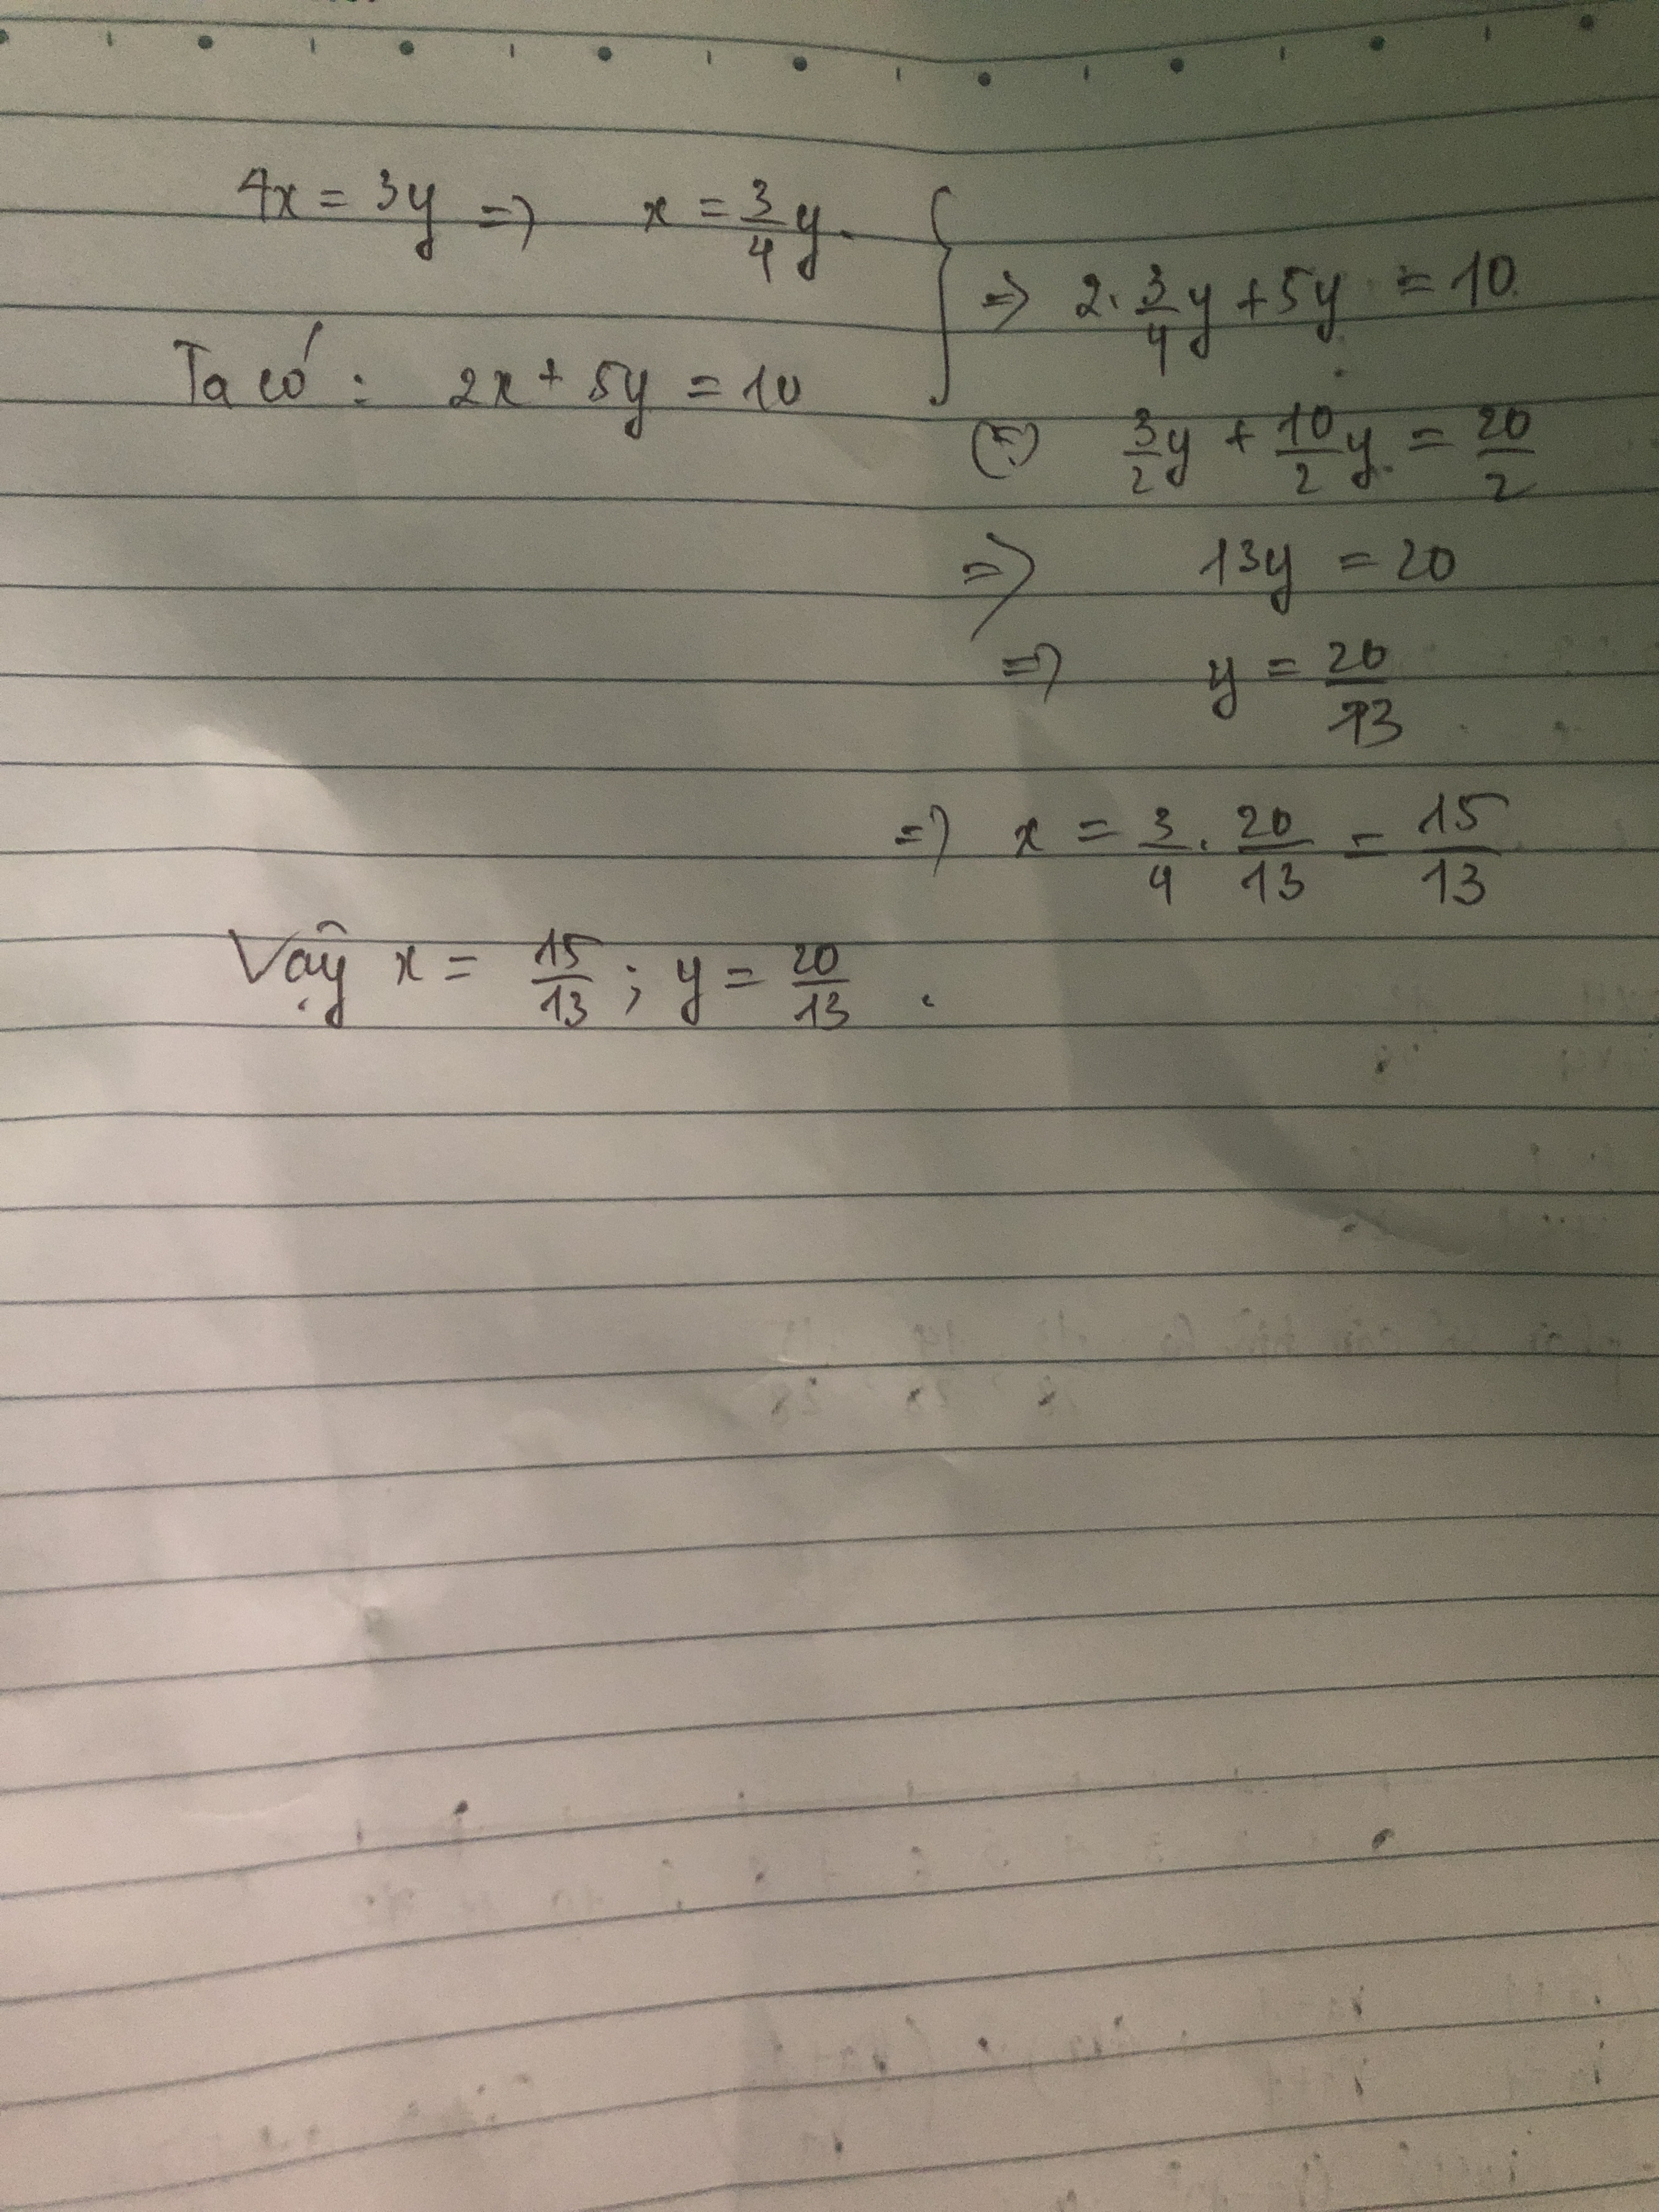 4x = 3y => x = 3/4 y.
Ta có: 2x + 5y = 10
=> 2. 3/4 y + 5y = 10.
(=) 3/2 y + 10/2 y. = 20/2
=> 13y = 20
=> y = 20/13
=> x = 3/4 . 20/13 = 15/13
Vậy x = 15/13 ; y = 20/13 .